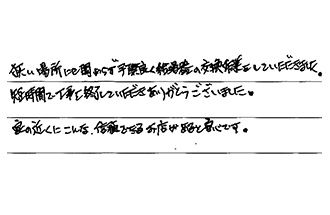 狭い場所にも関わらず手際良く給湯器の交換作業をしていただきました。
短時間で工事を終了していただきありがとうございました。
家の近くにこんな、信頼できるお店があると安心です。